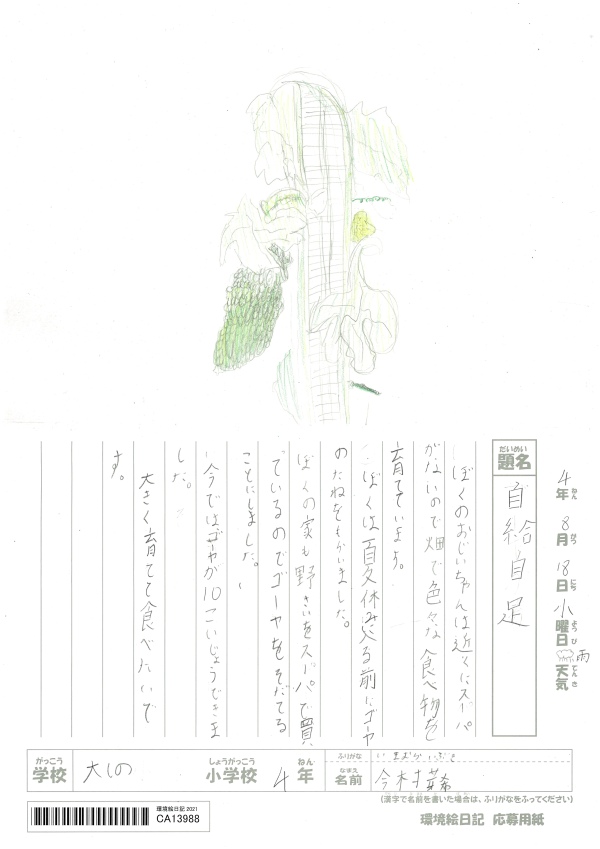 4年 8月 18日 小曜日 雨 天気
ねん がつ にち ようび てんき
だいめい
題名
自給自足
ぼくのおじいちゃんは近くにスーパ
がないので畑で色々な食べ物を
育てています。
ぼくは夏休み入る前にゴーヤ
のたねをもらいました。
ぼくの家も野さいをスーパで買
っているのでゴーヤをそだてる
ことにしました。
今ではゴーヤが10こいじょうできま
した。
大きく育てて食べたいで
す。
がっこう
学校
しょうがっこう
小学校
4
ねん
年
ふりがな
なまえ
名前
(漢字で名前を書いた場合は、ふりがなをふってください)
環境絵日記 2021
CA13988
環境絵日記 応募用紙